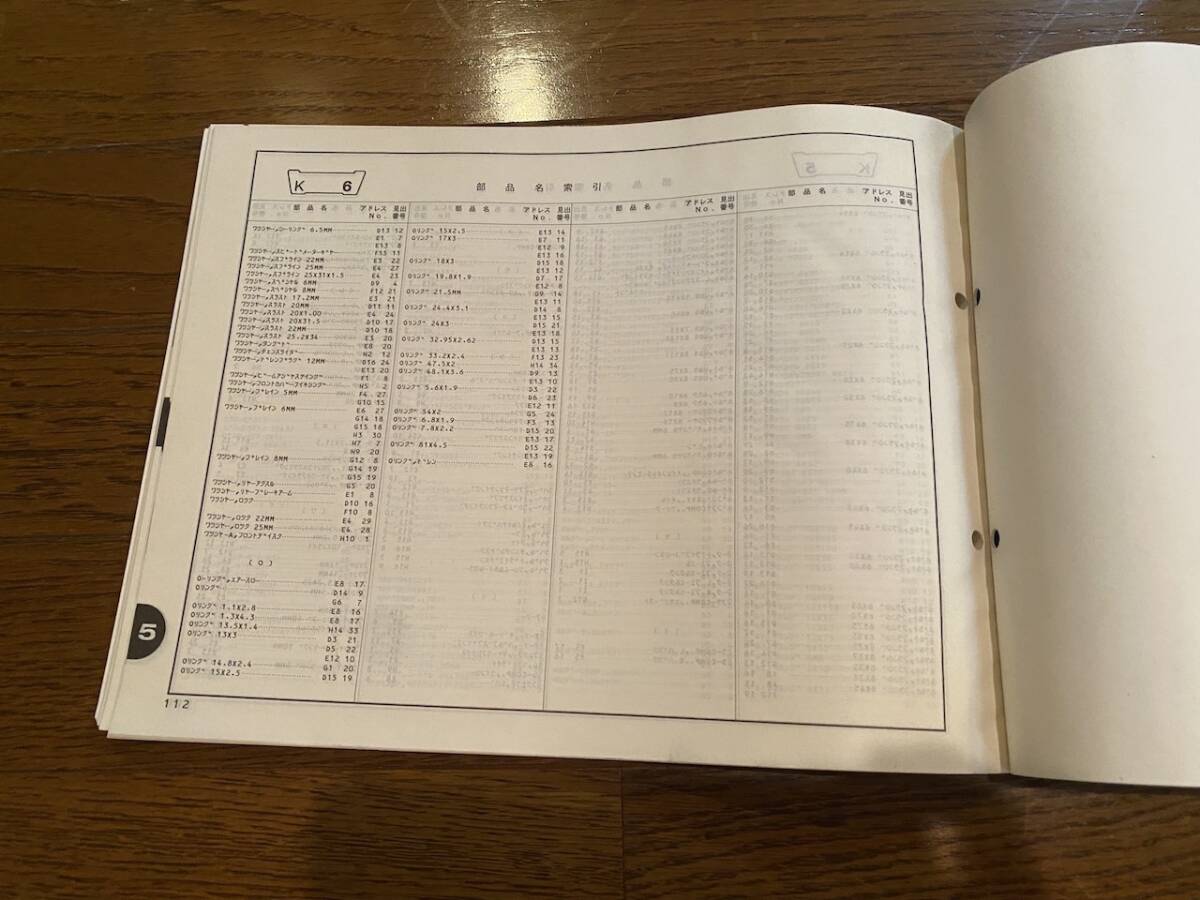 K 6
部品名索引
部品名 アドレスNo. 見出番号
ワツシヤー,シーリング 6.5MM D13 12
E1 7
E13 8
ワツシヤー,スピードメーターギヤー F15 11
ワツシヤー,スプライン 22MM E3 22
ワツシヤー,スプライン 25MM E4 27
ワツシヤー,スプライン 25X31X1.5 E4 23
ワツシヤー,スペシヤル 6MM D9 4
ワツシヤー,スペシヤル 8MM F12 21
ワツシヤー,スラスト 17.2MM E3 21
ワツシヤー,スラスト 20MM D11 11
ワツシヤー,スラスト 20X1.00 E4 24
ワツシヤー,スラスト 20X31.5 D10 17
ワツシヤー,スラスト 22MM D10 18
ワツシヤー,スラスト 25.2X34 E3 20
ワツシヤー,タングド E8 20
ワツシヤー,チエンスライダー H2 12
ワツシヤー,ドレンプラグ 12MM D16 24
E13 20
ワツシヤー,ビームアジヤステイング F1 8
ワツシヤー,フロントカバーフイキシング H5 2
ワツシヤー,プレイン 5MM F4 27
G10 15
ワツシヤー,プレイン 6MM E6 27
G14 18
G15 18
H3 30
H7 7
H9 20
ワツシヤー,プレイン 8MM G12 8
G14 19
G15 19
ワツシヤー,リヤーアクスル G5 20
ワツシヤー,リヤーブレーキアーム E1 8
ワツシヤー,ロツク D10 16
F10 8
ワツシヤー,ロツク 22MM E4 29
ワツシヤー,ロツク 25MM E4 28
ワツシヤーA,フロントデイスク H10 1
(O)
O-リング,エアースロー E8 17
Oリング D14 9
G6 7
Oリング 1.1X2.8 E8 16
Oリング 1.3X4.3 E8 17
Oリング 13.5X1.4 H14 33
Oリング 13X3 D3 21
D5 22
E12 10
Oリング 14.8X2.4 G1 20
Oリング 15X2.5 D15 19
部品名 アドレスNo. 見出番号
Oリング 15X2.5 E13 14
Oリング 17X3 E7 11
E12 9
E13 16
Oリング 18X3 D15 18
E13 12
Oリング 19.8X1.9 D7 17
E12 8
Oリング 21.5MM G9 14
E13 11
Oリング 24.4X3.1 D14 8
E13 15
Oリング 24X3 D15 21
E13 18
Oリング 32.95X2.62 D13 15
E13 13
Oリング 33.2X2.4 F13 23
Oリング 47.5X2 H14 34
Oリング 48.1X3.6 D9 13
E13 10
Oリング 5.6X1.9 D3 22
D6 23
E12 11
Oリング 54X2 G5 24
Oリング 6.8X1.9 F3 13
Oリング 7.8X2.2 D15 20
E13 17
Oリング 81X4.5 D15 22
E13 19
Oリング,ドレン E8 16
部品名 アドレスNo. 見出番号
部品名 アドレスNo. 見出番号
5
112